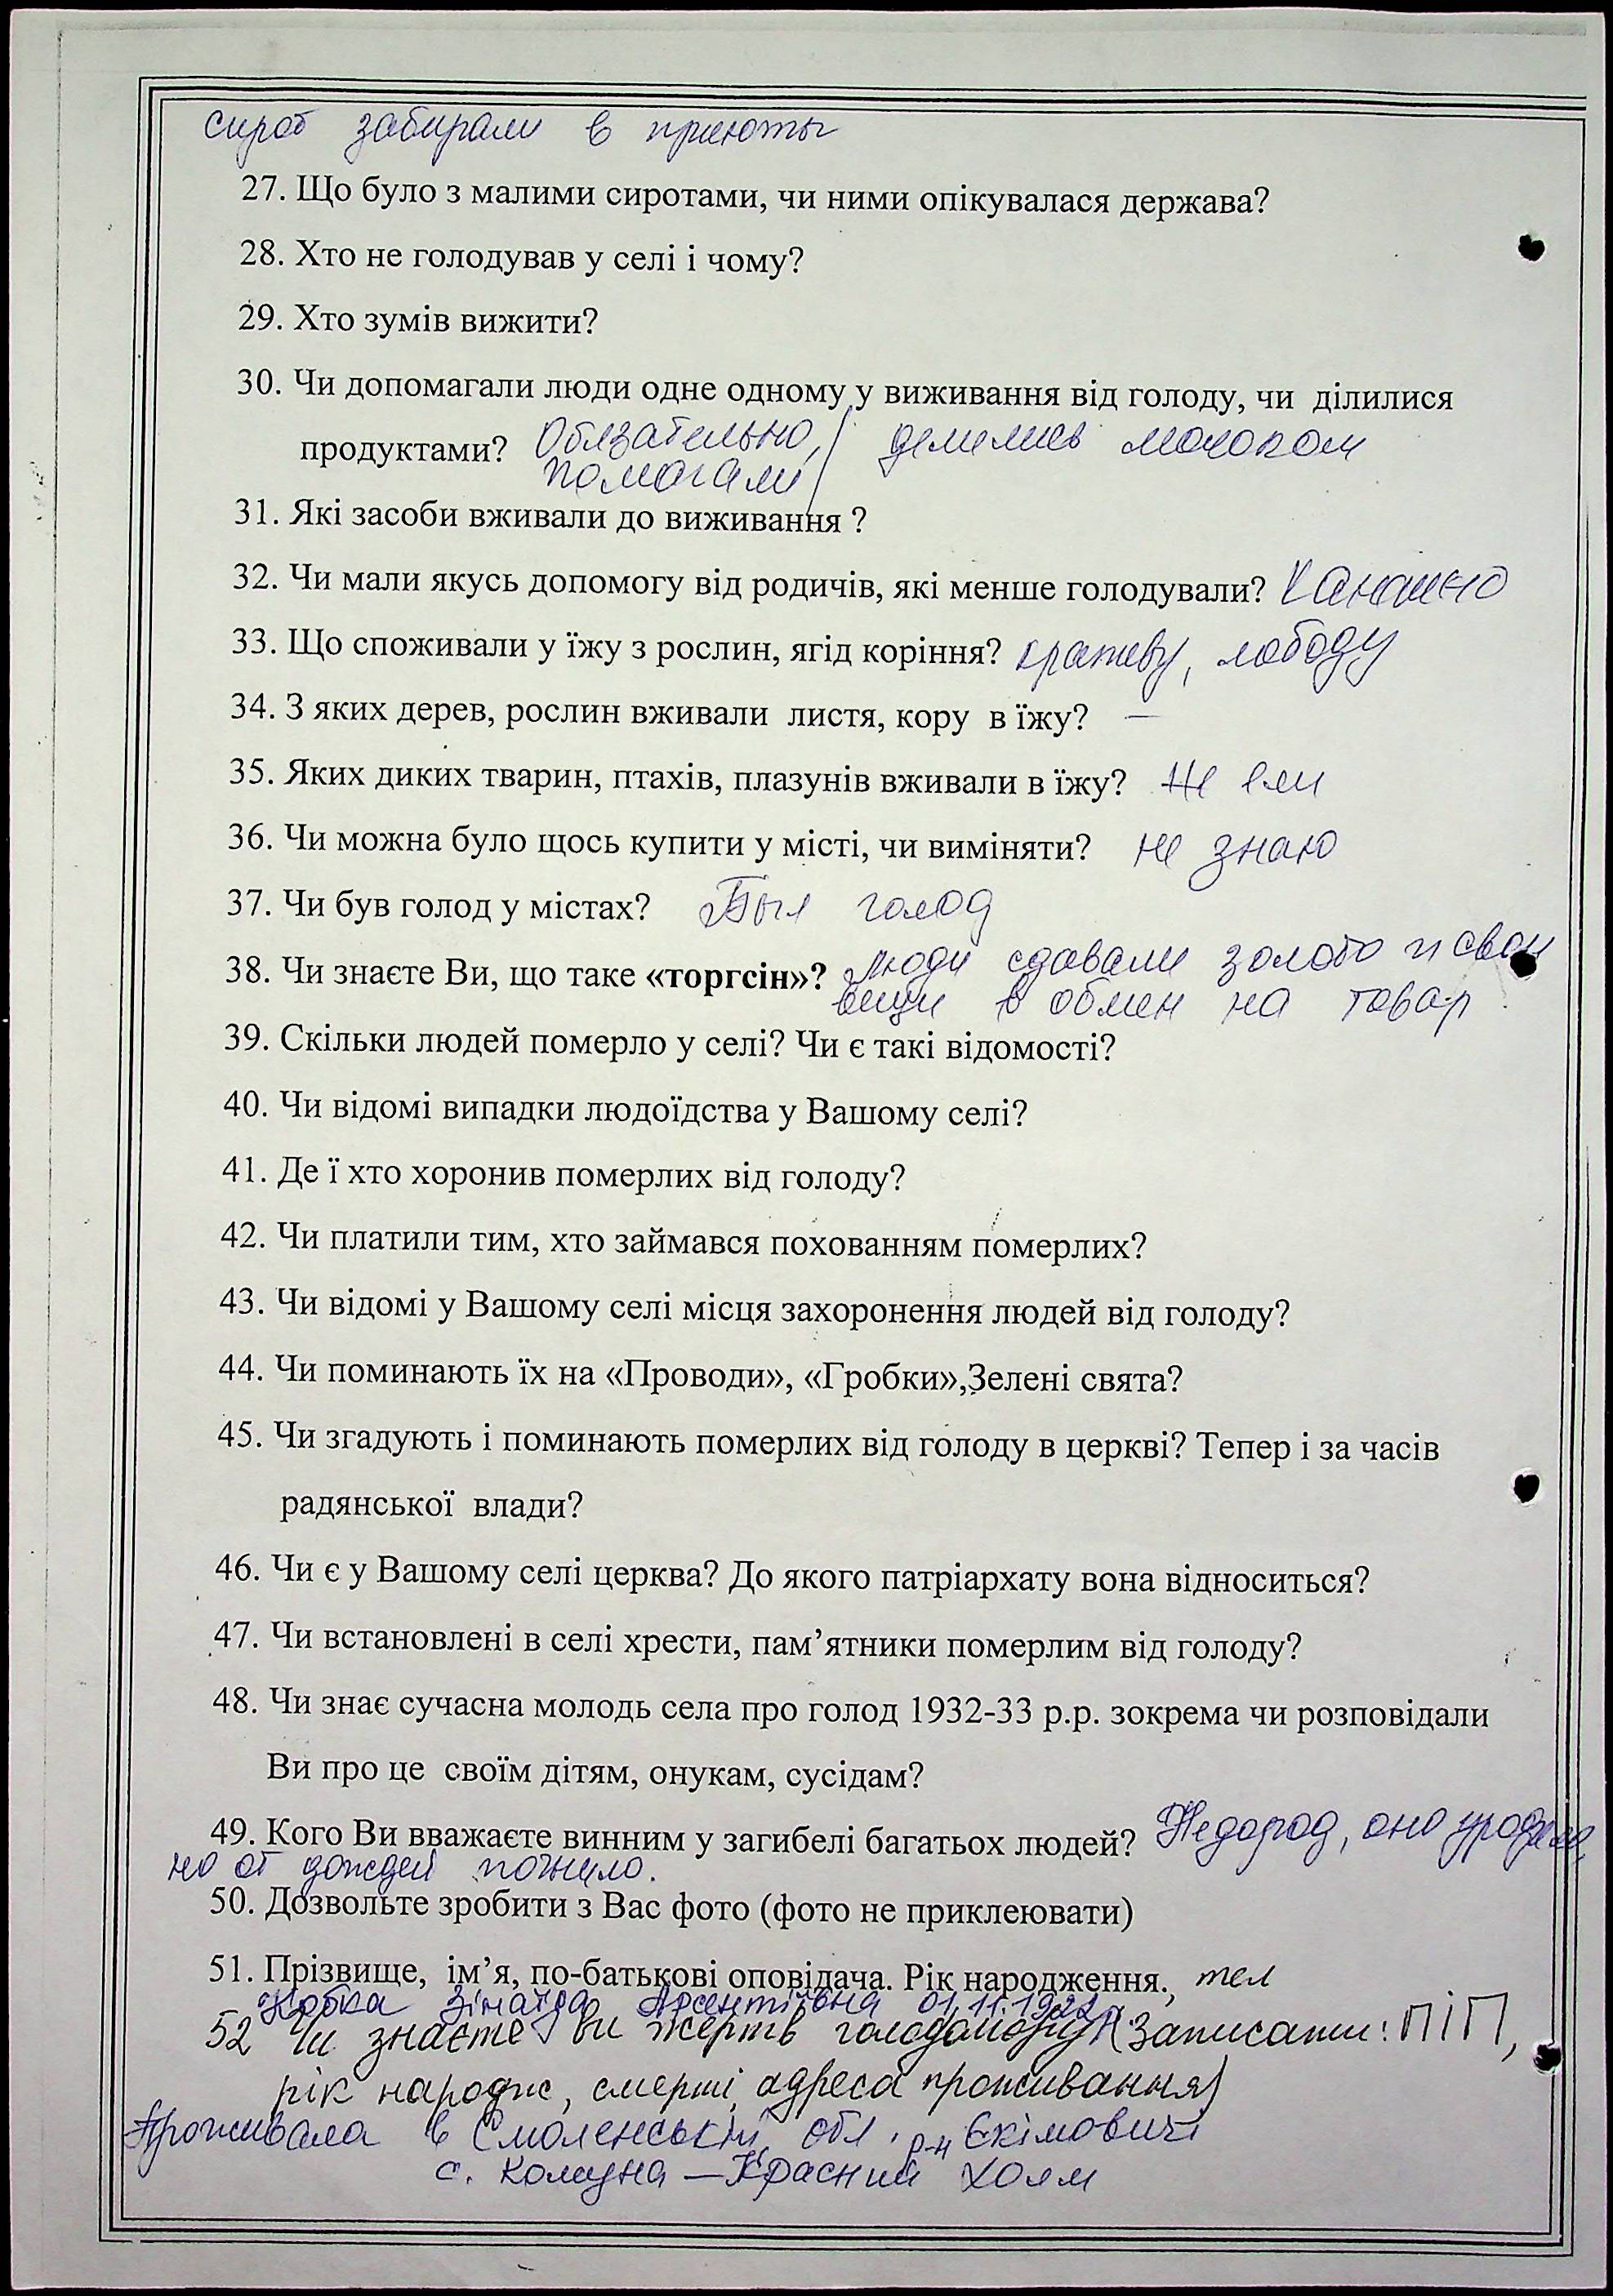 сирот забирали в приюты
27. Що було з малими сиротами, чи ними опікувалася держава?
28. Хто не голодував у селі і чому?
29. Хто зумів вижити?
30. Чи допомагали люди одне одному у виживання від голоду, чи ділилися
продуктами? Обязательно, делились молоком
помогали
31. Які засоби вживали до виживання ?
32. Чи мали якусь допомогу від родичів, які менше голодували?
33. Що споживали у їжу з рослин, ягід коріння? крапеву, лободу
34. З яких дерев, рослин вживали листя, кору в їжу? —
35. Яких диких тварин, птахів, плазунів вживали в їжу? Не ели
36. Чи можна було щось купити у місті, чи виміняти? не знаю
37. Чи був голод у містах? Был голод
38. Чи знаєте Ви, що таке «торгсін»? Люди сдавали золото и свои
вещи в обмен на товар
39. Скільки людей померло у селі? Чи є такі відомості?
40. Чи відомі випадки людоїдства у Вашому селі?
41. Де ї хто хоронив померлих від голоду?
42. Чи платили тим, хто займався похованням померлих?
43. Чи відомі у Вашому селі місця захоронення людей від голоду?
44. Чи поминають їх на «Проводи», «Гробки»,Зелені свята?
45. Чи згадують і поминають померлих від голоду в церкві? Тепер і за часів
радянської влади?
46. Чи є у Вашому селі церква? До якого патріархату вона відноситься?
47. Чи встановлені в селі хрести, пам’ятники померлим від голоду?
48. Чи знає сучасна молодь села про голод 1932-33 р.р. зокрема чи розповідали
Ви про це своїм дітям, онукам, сусідам?
49. Кого Ви вважаєте винним у загибелі багатьох людей? Недород, оно
но от дождей погнило.
50. Дозвольте зробити з Вас фото (фото не приклеювати)
51. Прізвище, ім’я, по-батькові оповідача. Рік народження., тел
Зінаїда Арсентіївна 01.11.1922
52 Чи знаєте Ви жертв голодомору (записати: ПІП,
рік народж, смерті, адреса проживання)
Проживала в Смоленській обл. р-н Єкімовичі
с. Комуна – Красний Холм